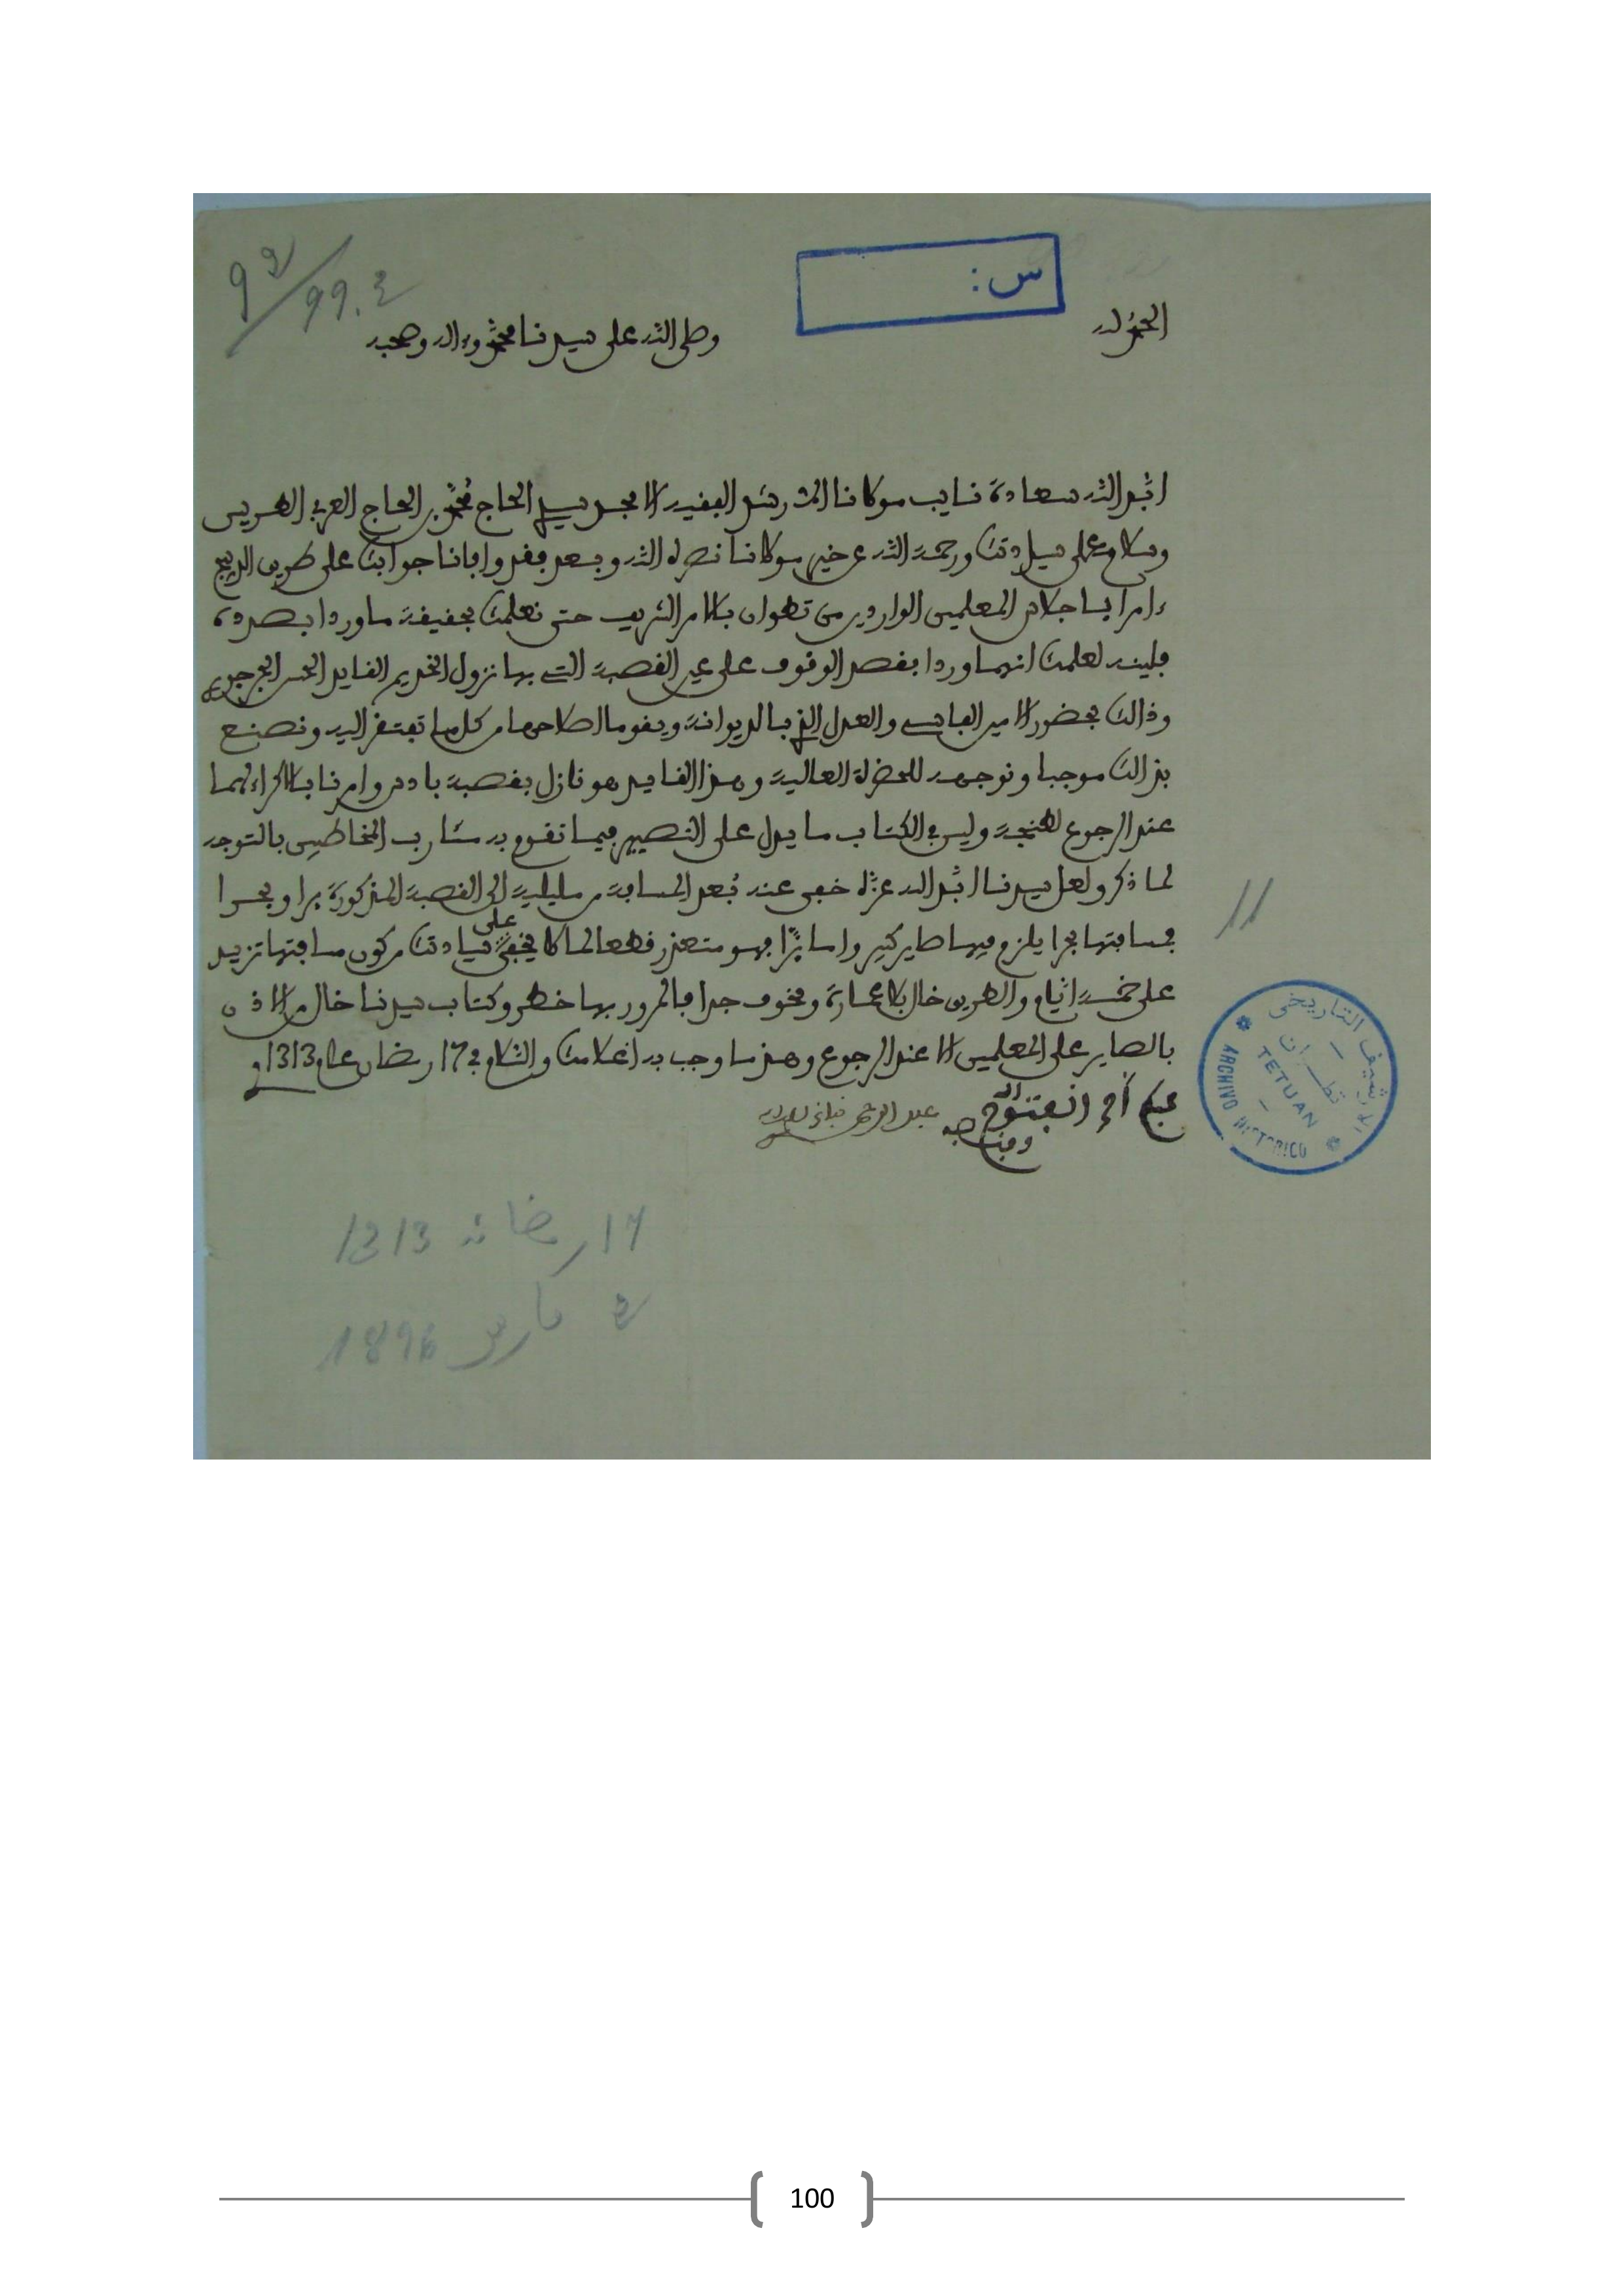 الحمد لله
وصلى الله على سيدنا محمد وءاله وصحبه
س:
99.2
ابد الله سعادة نايب مولانا المرشد الفقيه الامجد سيدي الحاج محمد بن الحاج العربي الطريس
وسلام على سيادتك ورحمة الله عن خير مولانا نصره الله وبعد فقد وافانا جوابك على طريق الريح
ءامرا باجلاس المعلمين الواردين من تطوان بالامر الشريف حتى نعلمك بحقيقة ما وردا بصدده
فليند لعلمك انهما وردا بقصد الوقوف على عين القصبة التي بها نزول الخديم القايد الحسن الجرجوري
وذالك بحضور الامين الفاسي والعدل الذي بالديوانة ويقوما اصلاحها من كل ما تفتقر اليه ونصنع
بذالك موجبا ونوجهه للحضرة العالية وهذا القايد هو نازل بقصبة بادس وامرنا بالاكراء لهما
عند الرجوع لطنجة وليس في الكتاب ما يدل على التصيير فيما نقوم به مئارب المخاطبين بالتوجه
لما ذكر ولعل سيدنا ابد الله عزه خفى عنه بعد المسافة من مليلية الى القصبة المذكورة برا وبحرا
فمسافتها بحرا يلزم فيها صاير كبير واما برا فهو متعذر قطعا لما لا يخفى على سيادتك من كون مسافتها تزيد
على خمسة ايام والطريق خال بلا عمارة ومخوف جدا فالمرور بها خطر وكتاب سيدنا خال من الاذن
بالصاير على المعلمين الا عند الرجوع وهذا ما وجب به اعلامك والسلام في 17 رمضان عام 1313
عبد الرحمن
17 رمضان 1313
2 مارس 1896
11
الارشيف التاريخي
تطوان
TETUAN
ARCHIVO HISTORICO
100